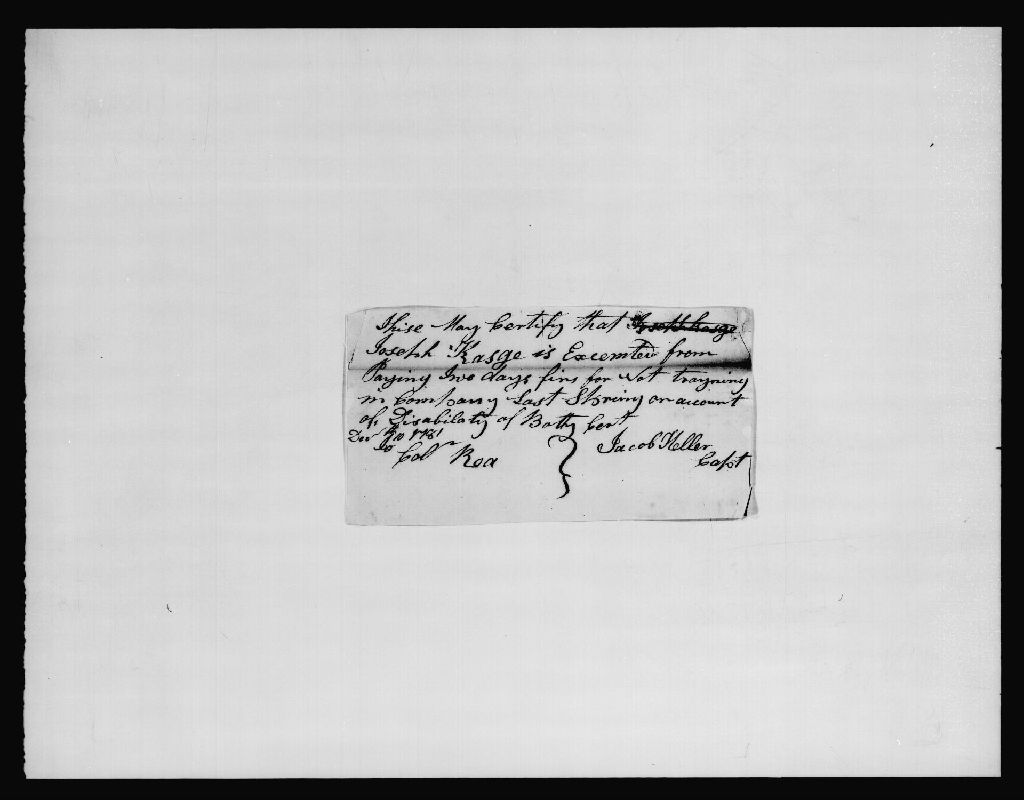 Thise May Certify that Joseph Kasge
Joseph Kasge is Excemted from
Paying Two days fins for Not trayning
in Company Last Spring on account
of Disabilaty of Body Cert
Decr 1781
To Jacob Heller
Coll Rea Capt